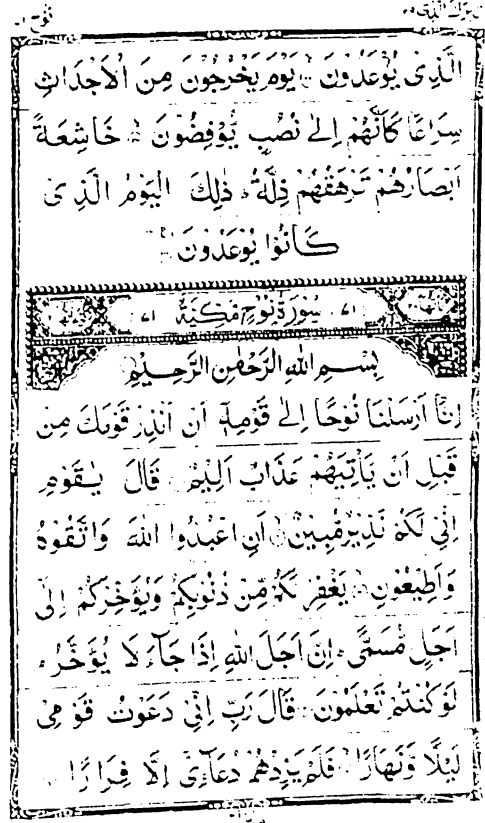 تبٰرك الذى ٢٩ نوح ٧١
الَّذِىۡ يُوۡعَدُوۡنَ يَوۡمَ يَخۡرُجُوۡنَ مِنَ الۡاَجۡدَاثِ
سِرَاعًا كَاَنَّهُمۡ اِلٰى نُصُبٍ يُّوۡفِضُوۡنَ خَاشِعَةً
اَبۡصَارُهُمۡ تَرۡهَقُهُمۡ ذِلَّةٌ ذٰلِكَ الۡيَوۡمُ الَّذِىۡ
كَانُوۡا يُوۡعَدُوۡنَ
٧١ سُوۡرَةُ نُوۡحٍ مَكِّيَّةٌ ٧١
بِسۡمِ اللّٰهِ الرَّحۡمٰنِ الرَّحِيۡمِ
اِنَّاۤ اَرۡسَلۡنَا نُوۡحًا اِلٰى قَوۡمِهٖۤ اَنۡ اَنۡذِرۡ قَوۡمَكَ مِنۡ
قَبۡلِ اَنۡ يَّاۡتِيَهُمۡ عَذَابٌ اَلِيۡمٌ قَالَ يٰقَوۡمِ
اِنِّىۡ لَكُمۡ نَذِيۡرٌ مُّبِيۡنٌ اَنِ اعۡبُدُوا اللّٰهَ وَاتَّقُوۡهُ
وَاَطِيۡعُوۡنِ يَغۡفِرۡ لَكُمۡ مِّنۡ ذُنُوۡبِكُمۡ وَيُؤَخِّرۡكُمۡ اِلٰٓى
اَجَلٍ مُّسَمًّى اِنَّ اَجَلَ اللّٰهِ اِذَا جَآءَ لَا يُؤَخَّرُ
لَوۡ كُنۡتُمۡ تَعۡلَمُوۡنَ قَالَ رَبِّ اِنِّىۡ دَعَوۡتُ قَوۡمِىۡ
لَيۡلًا وَّنَهَارًا فَلَمۡ يَزِدۡهُمۡ دُعَآءِىۡۤ اِلَّا فِرَارًا